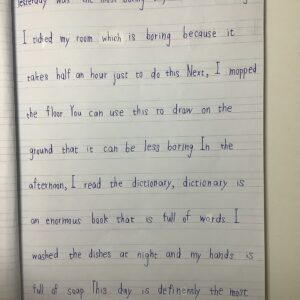 yesterday was the most boring
I tidied my room which is boring because it
takes half an hour just to do this. Next, I mopped
the floor. You can use this to draw on the
ground that it can be less boring. In the
afternoon, I read the dictionary, dictionary is
an enormous book that is full of words. I
washed the dishes at night and my hands is
full of soap. This day is definemly the most